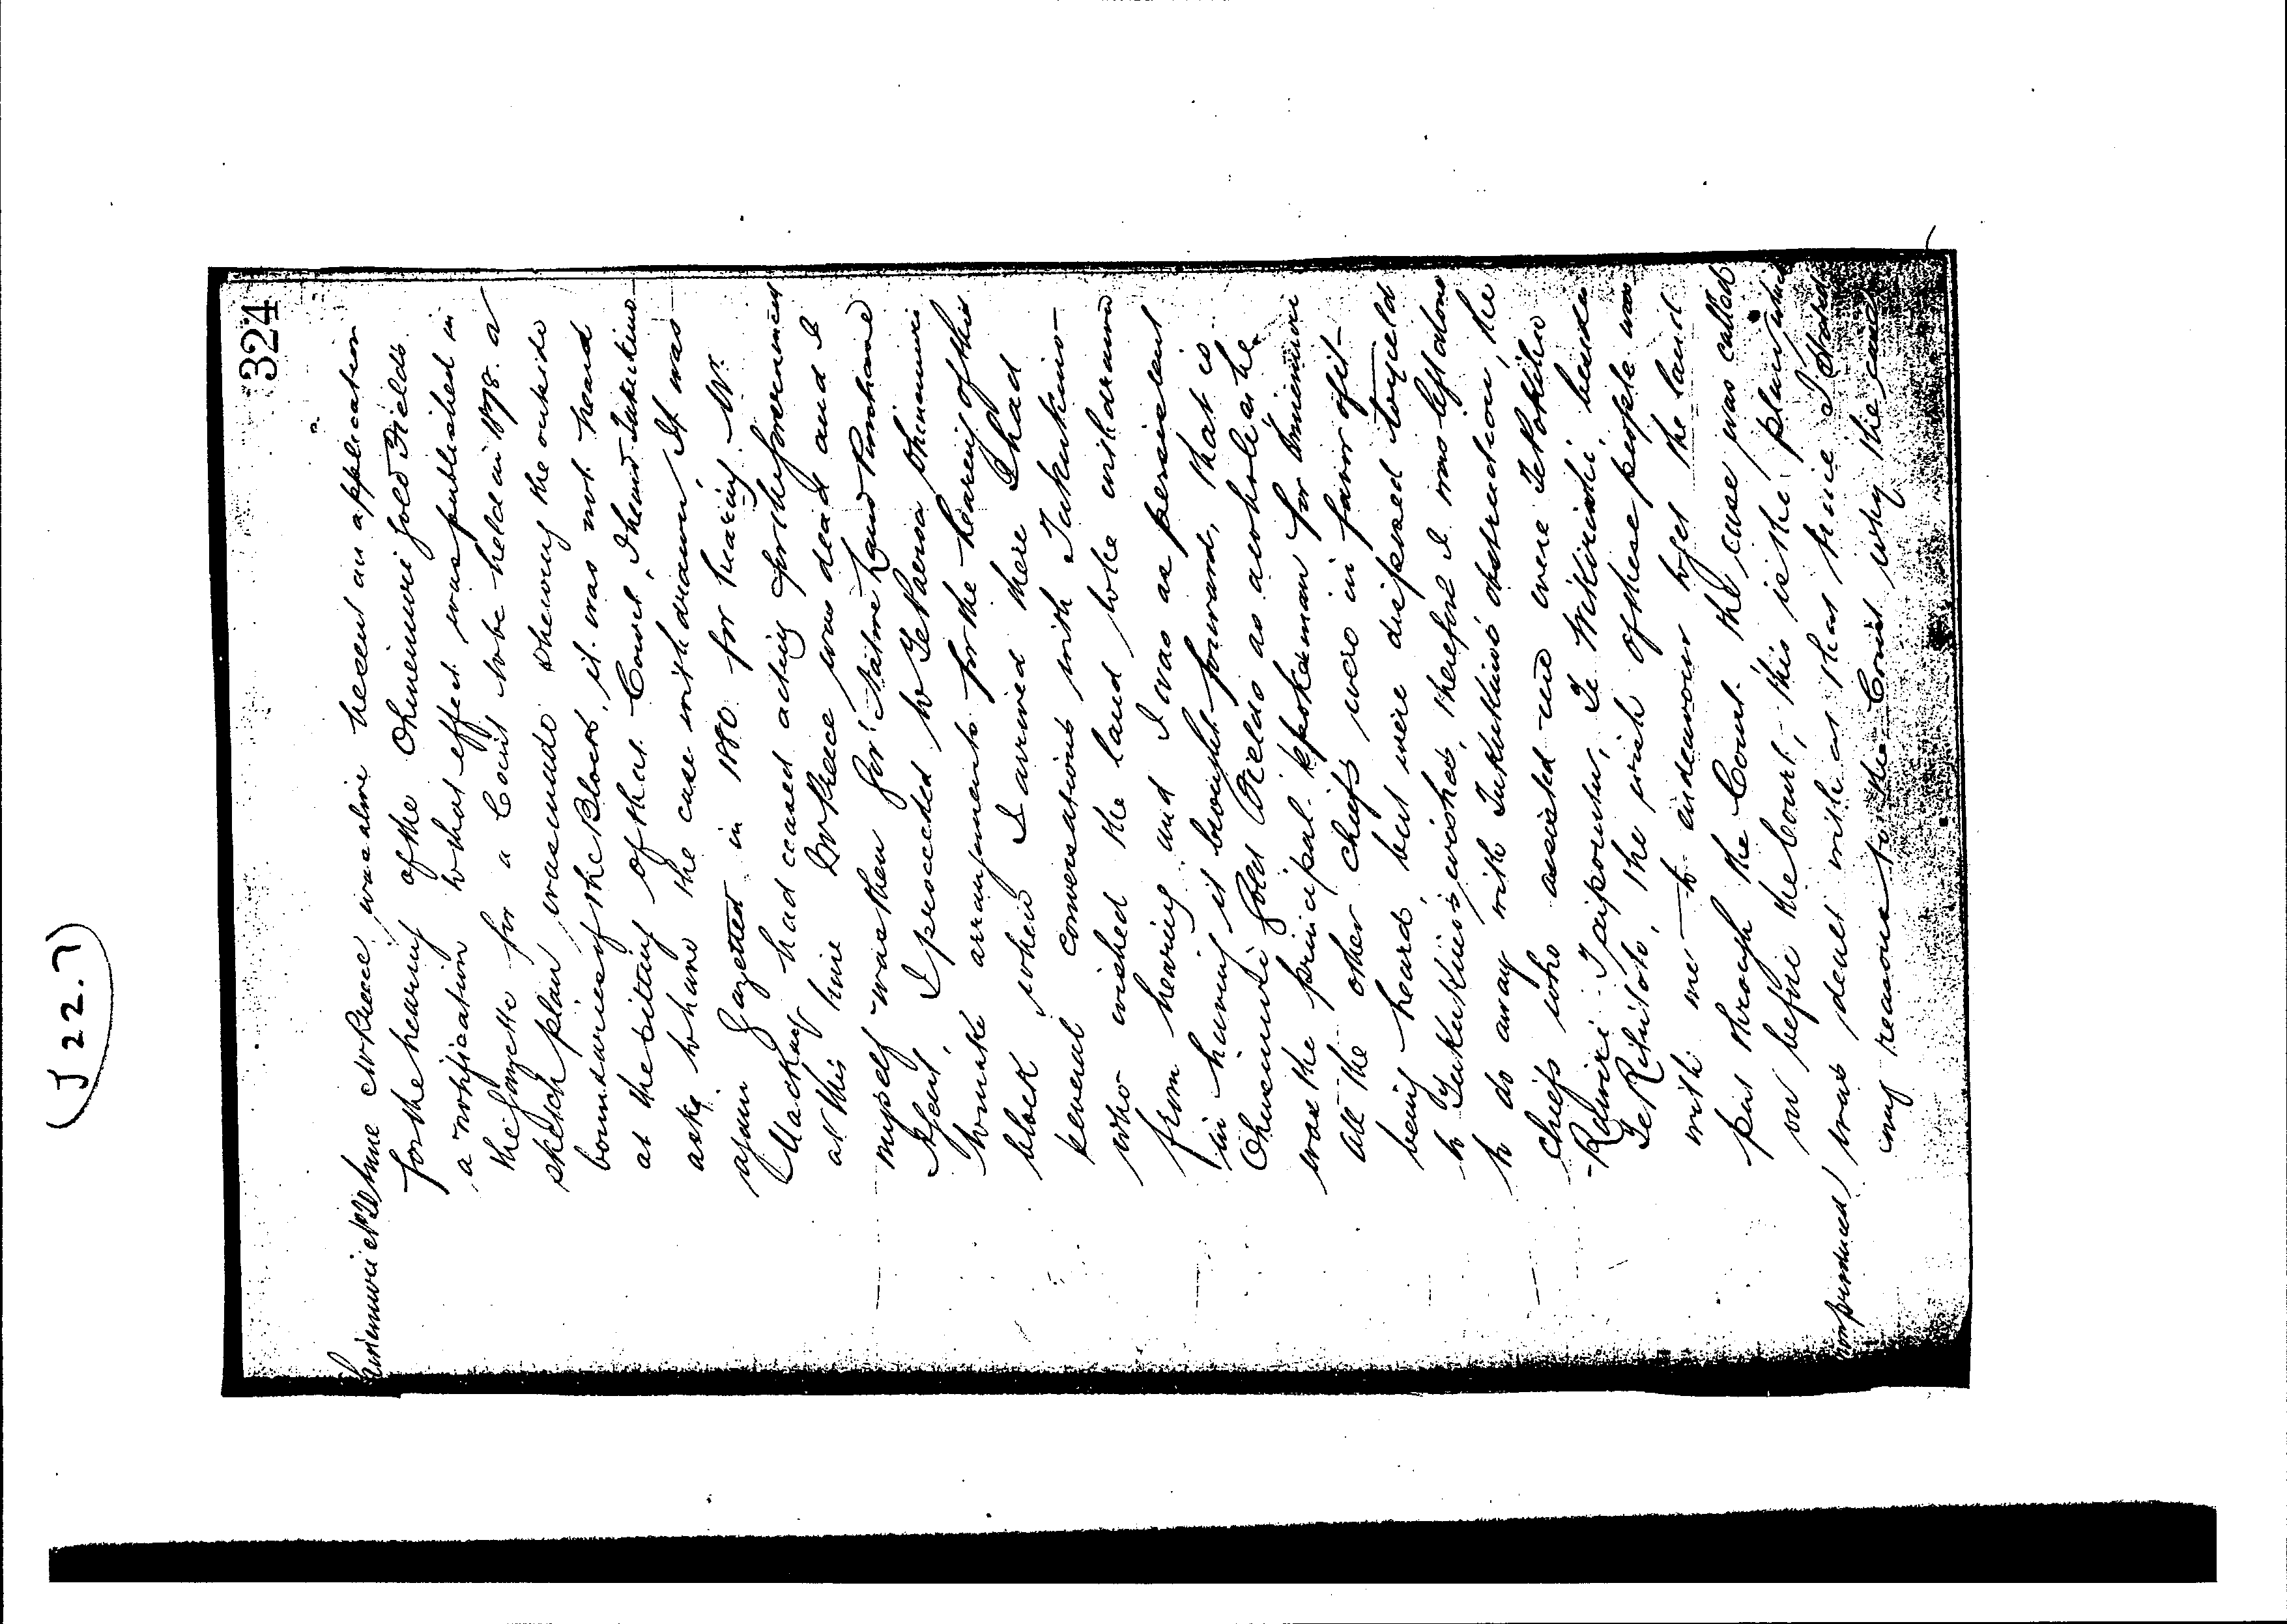 324
(J 22.7)
McReece was alive herein an application
for the hearing of the Ohinemuri Gold Fields
a notification to that effect was published in
the Gazette for a Court to be held in 1878. a
sketch plan was made shewing the outside
boundaries of the Block, it was not heard
at the sitting of that Court, I heard Tukukino
ask to have the case withdrawn, It was
again Gazetted in 1880 for hearing. Mr.
Mackay had ceased acting for the Government
at this time McReece was dead and I
myself was then Govt. Native Land Purchase
Agent, I proceeded to Te Paeroa Ohinemuri
to make arrangements for the hearing of this
block when I arrived there I had
several conversations with Tukukino -
who wished the land to be withdrawn
from hearing and I was as persistent
in having it brought forward, that is
Ohinemuri Gold Fields as a whole as he
was the principal spokesman for Ohinemuri
all the other chiefs were in favor of it -
being heard, but were disposed to yield
to Tukukino's wishes, therefore I was left alone
to do away with Tukukino's obstruction, the
chiefs who assisted me were Te Pokiha
Rawiri Taiporutu, Te Wikiriwhi, besides
the wish of these people was
with me to endeavour to get the land
put through the Court. the case was called
on before the Court, this is the plan which
(now produced) was dealt with at that time I stated
my reasons to the Court why the case